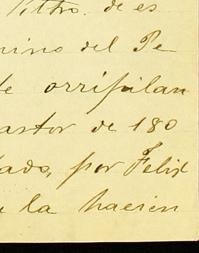 Pttro. de es
mino del Pe
de orripilan
astor de 180
dado, por Felix
a la hacien